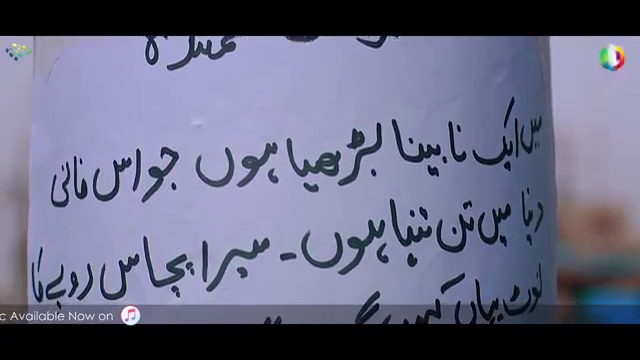 میں ایک نابینا بڑھیا ہوں جو اس فانی
دنیا میں تن تنہا ہوں۔ میرا پچاس روپے کا
نوٹ یہاں کہیں
c Available Now on